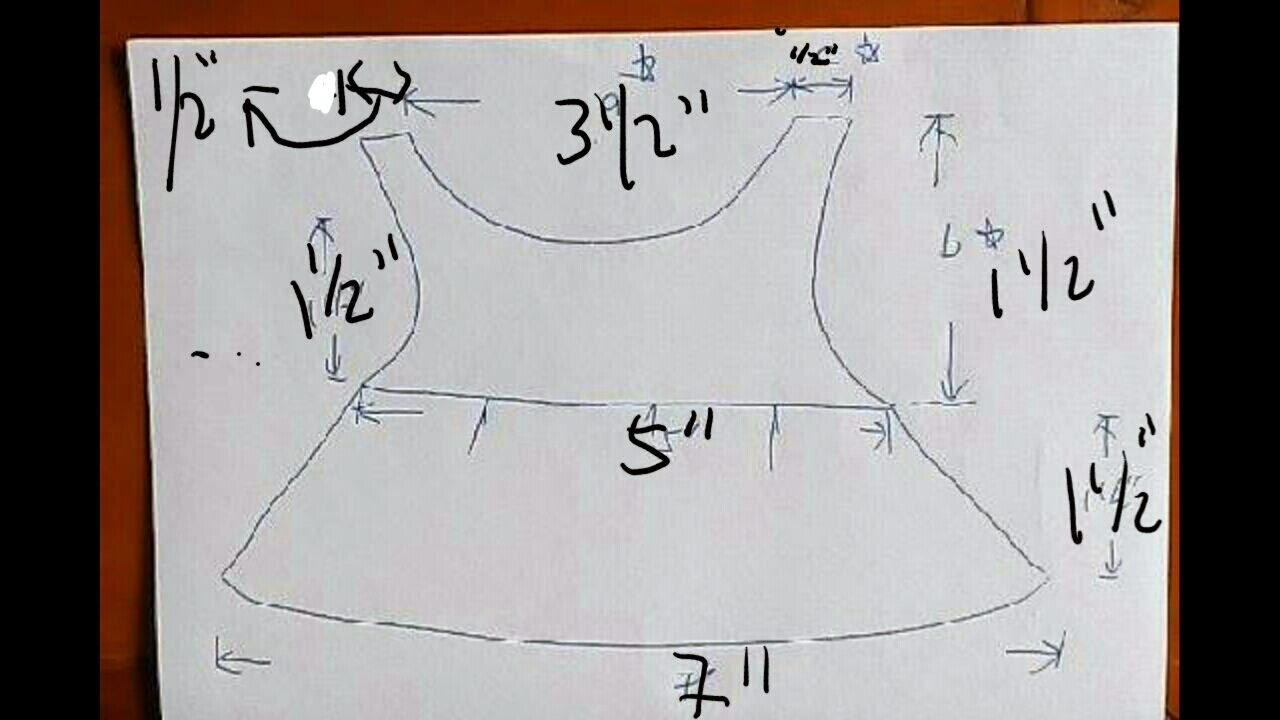 1/2"
1/2"
3 1/2"
1 1/2"
6
1 1/2"
5"
1 1/2"
7"